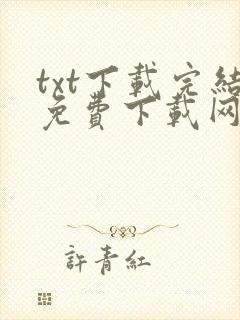 txt下載完結
免費下載网
許青紅